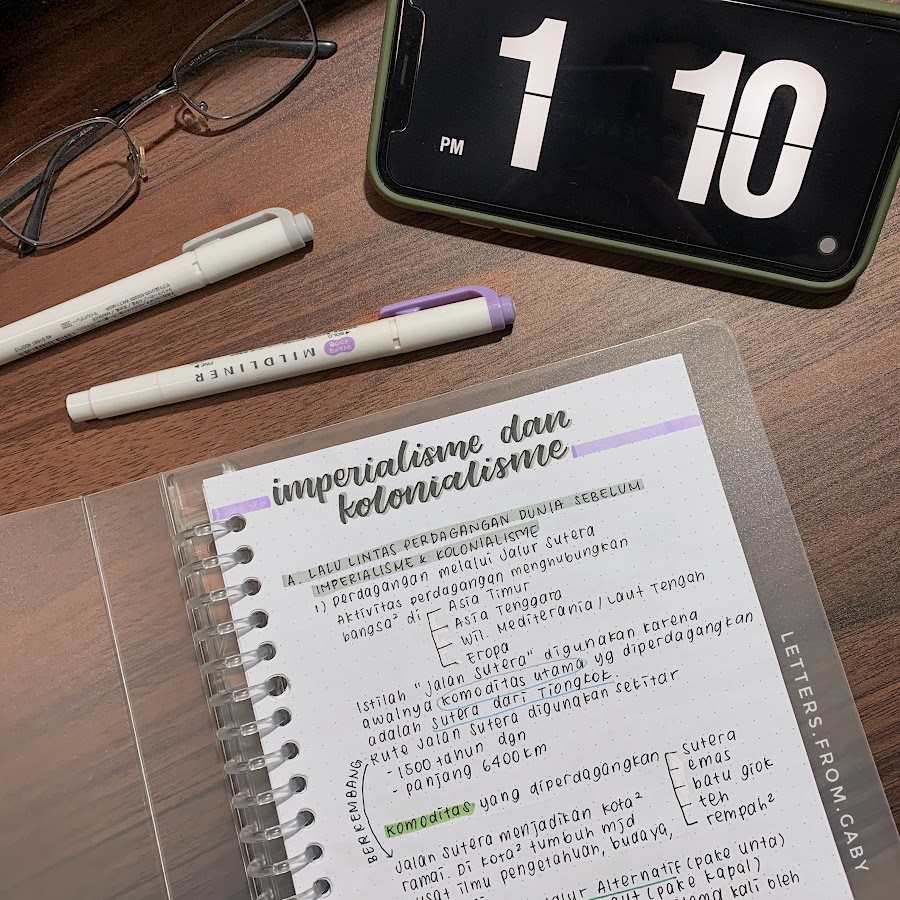 PM
1 10
MILDLINER
imperialisme dan
kolonialisme
A. LALU LINTAS PERDAGANGAN DUNIA SEBELUM
IMPERIALISME & KOLONIALISME
1) perdagangan melalui Jalur Sutera
Aktivitas perdagangan menghubungkan
bangsa² di
Asia Timur
Asia Tenggara
Wil. Mediterania / Laut Tengah
Eropa
Istilah "jalan sutera" digunakan karena
awalnya komoditas utama yg diperdagangkan
adalah sutera dari Tiongkok.
Rute jalan sutera digunakan sekitar
- 1500 tahun dgn
- panjang 6400 km
BERKEMBANG
komoditas yang diperdagangkan
sutera
emas
batu giok
teh
rempah²
Jalan Sutera menjadikan kota²
ramai. Di kota² tumbuh mjd
pusat ilmu pengetahuan, budaya,
Jalur Alternatif (pake unta)
Laut (pake kapal)
kali oleh
LETTERS.FROM.GABY